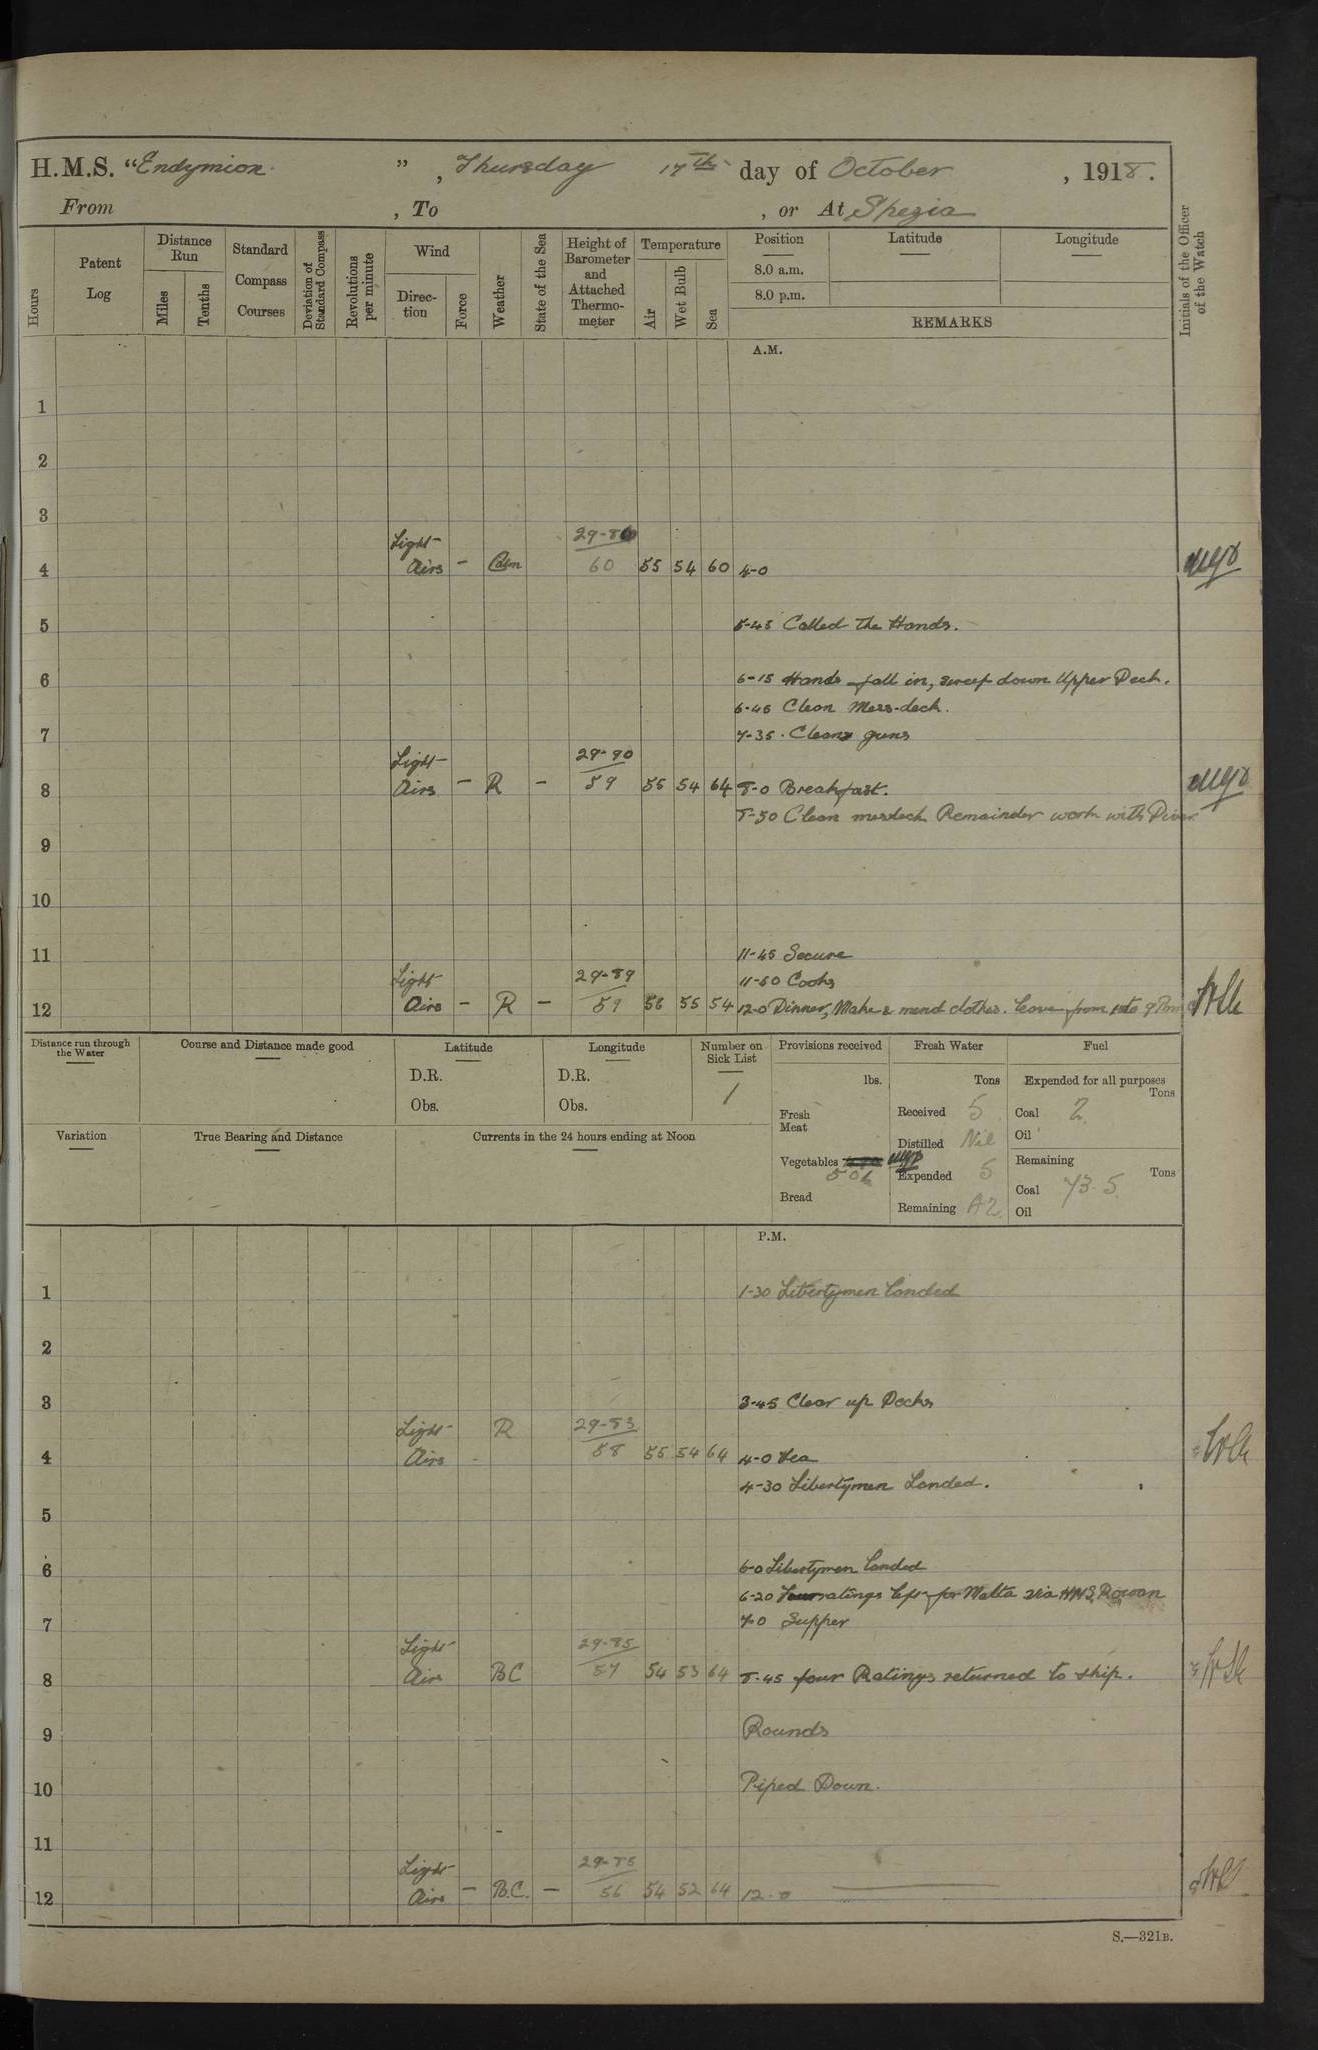 H.M.S. "Endymion", Thursday 17th day of October, 1918.
From , To , or At Spezia
Hours
Patent Log
Distance Run
Miles
Tenths
Standard Compass Courses
Deviation of Standard Compass
Revolutions per minute
Wind
Direction
Force
Weather
State of the Sea
Height of Barometer and Attached Thermometer
Temperature
Air
Wet Bulb
Sea
Position
Latitude
Longitude
8.0 a.m.
8.0 p.m.
REMARKS
Initials of the Officer of the Watch
A.M.
1
2
3
Light 29-86
4 Airs - Calm 60 55 54 60 4-0
5 5-45 Called the Hands.
6 6-15 Hands fall in, sweep down Upper Deck.
6-45 Clean Mess-deck.
7 7-35 Clean guns
Light 29-90
8 Airs - R - 59 55 54 64 8-0 Breakfast.
8-50 Clean messdeck Remainder work with Diver
9
10
11 11-45 Secure
Light 29-89 11-50 Cooks
12 Airs - R - 59 56 55 54 12-0 Dinner, Make & mend clothes. Leave from 1 to 9 Pm
Distance run through the Water
Course and Distance made good
Latitude
D.R.
Obs.
Longitude
D.R.
Obs.
Number on Sick List
1
Variation
True Bearing and Distance
Currents in the 24 hours ending at Noon
Provisions received
lbs.
Fresh Meat
Vegetables
506
Bread
Fresh Water
Tons
Received 5
Distilled Nil
Expended 5
Remaining 42
Fuel
Expended for all purposes
Tons
Coal 2
Oil
Remaining
Tons
Coal 73.5
Oil
P.M.
1 1-30 Libertymen landed
2
3 3-45 Clear up Decks
Light R 29-83
4 Airs 58 55 54 64 4-0 Tea
4-30 Libertymen Landed.
5
6 6-0 Libertymen landed
6-20 Four ratings left for Malta via HMS Rowan
7 7-0 Supper
Light 29-85
8 Airs BC 57 54 53 64 8-45 four Ratings returned to ship.
9 Rounds
10 Piped Down.
11
Light 29-85
12 Airs - B.C. - 56 54 52 64 12-0
S.—321B.